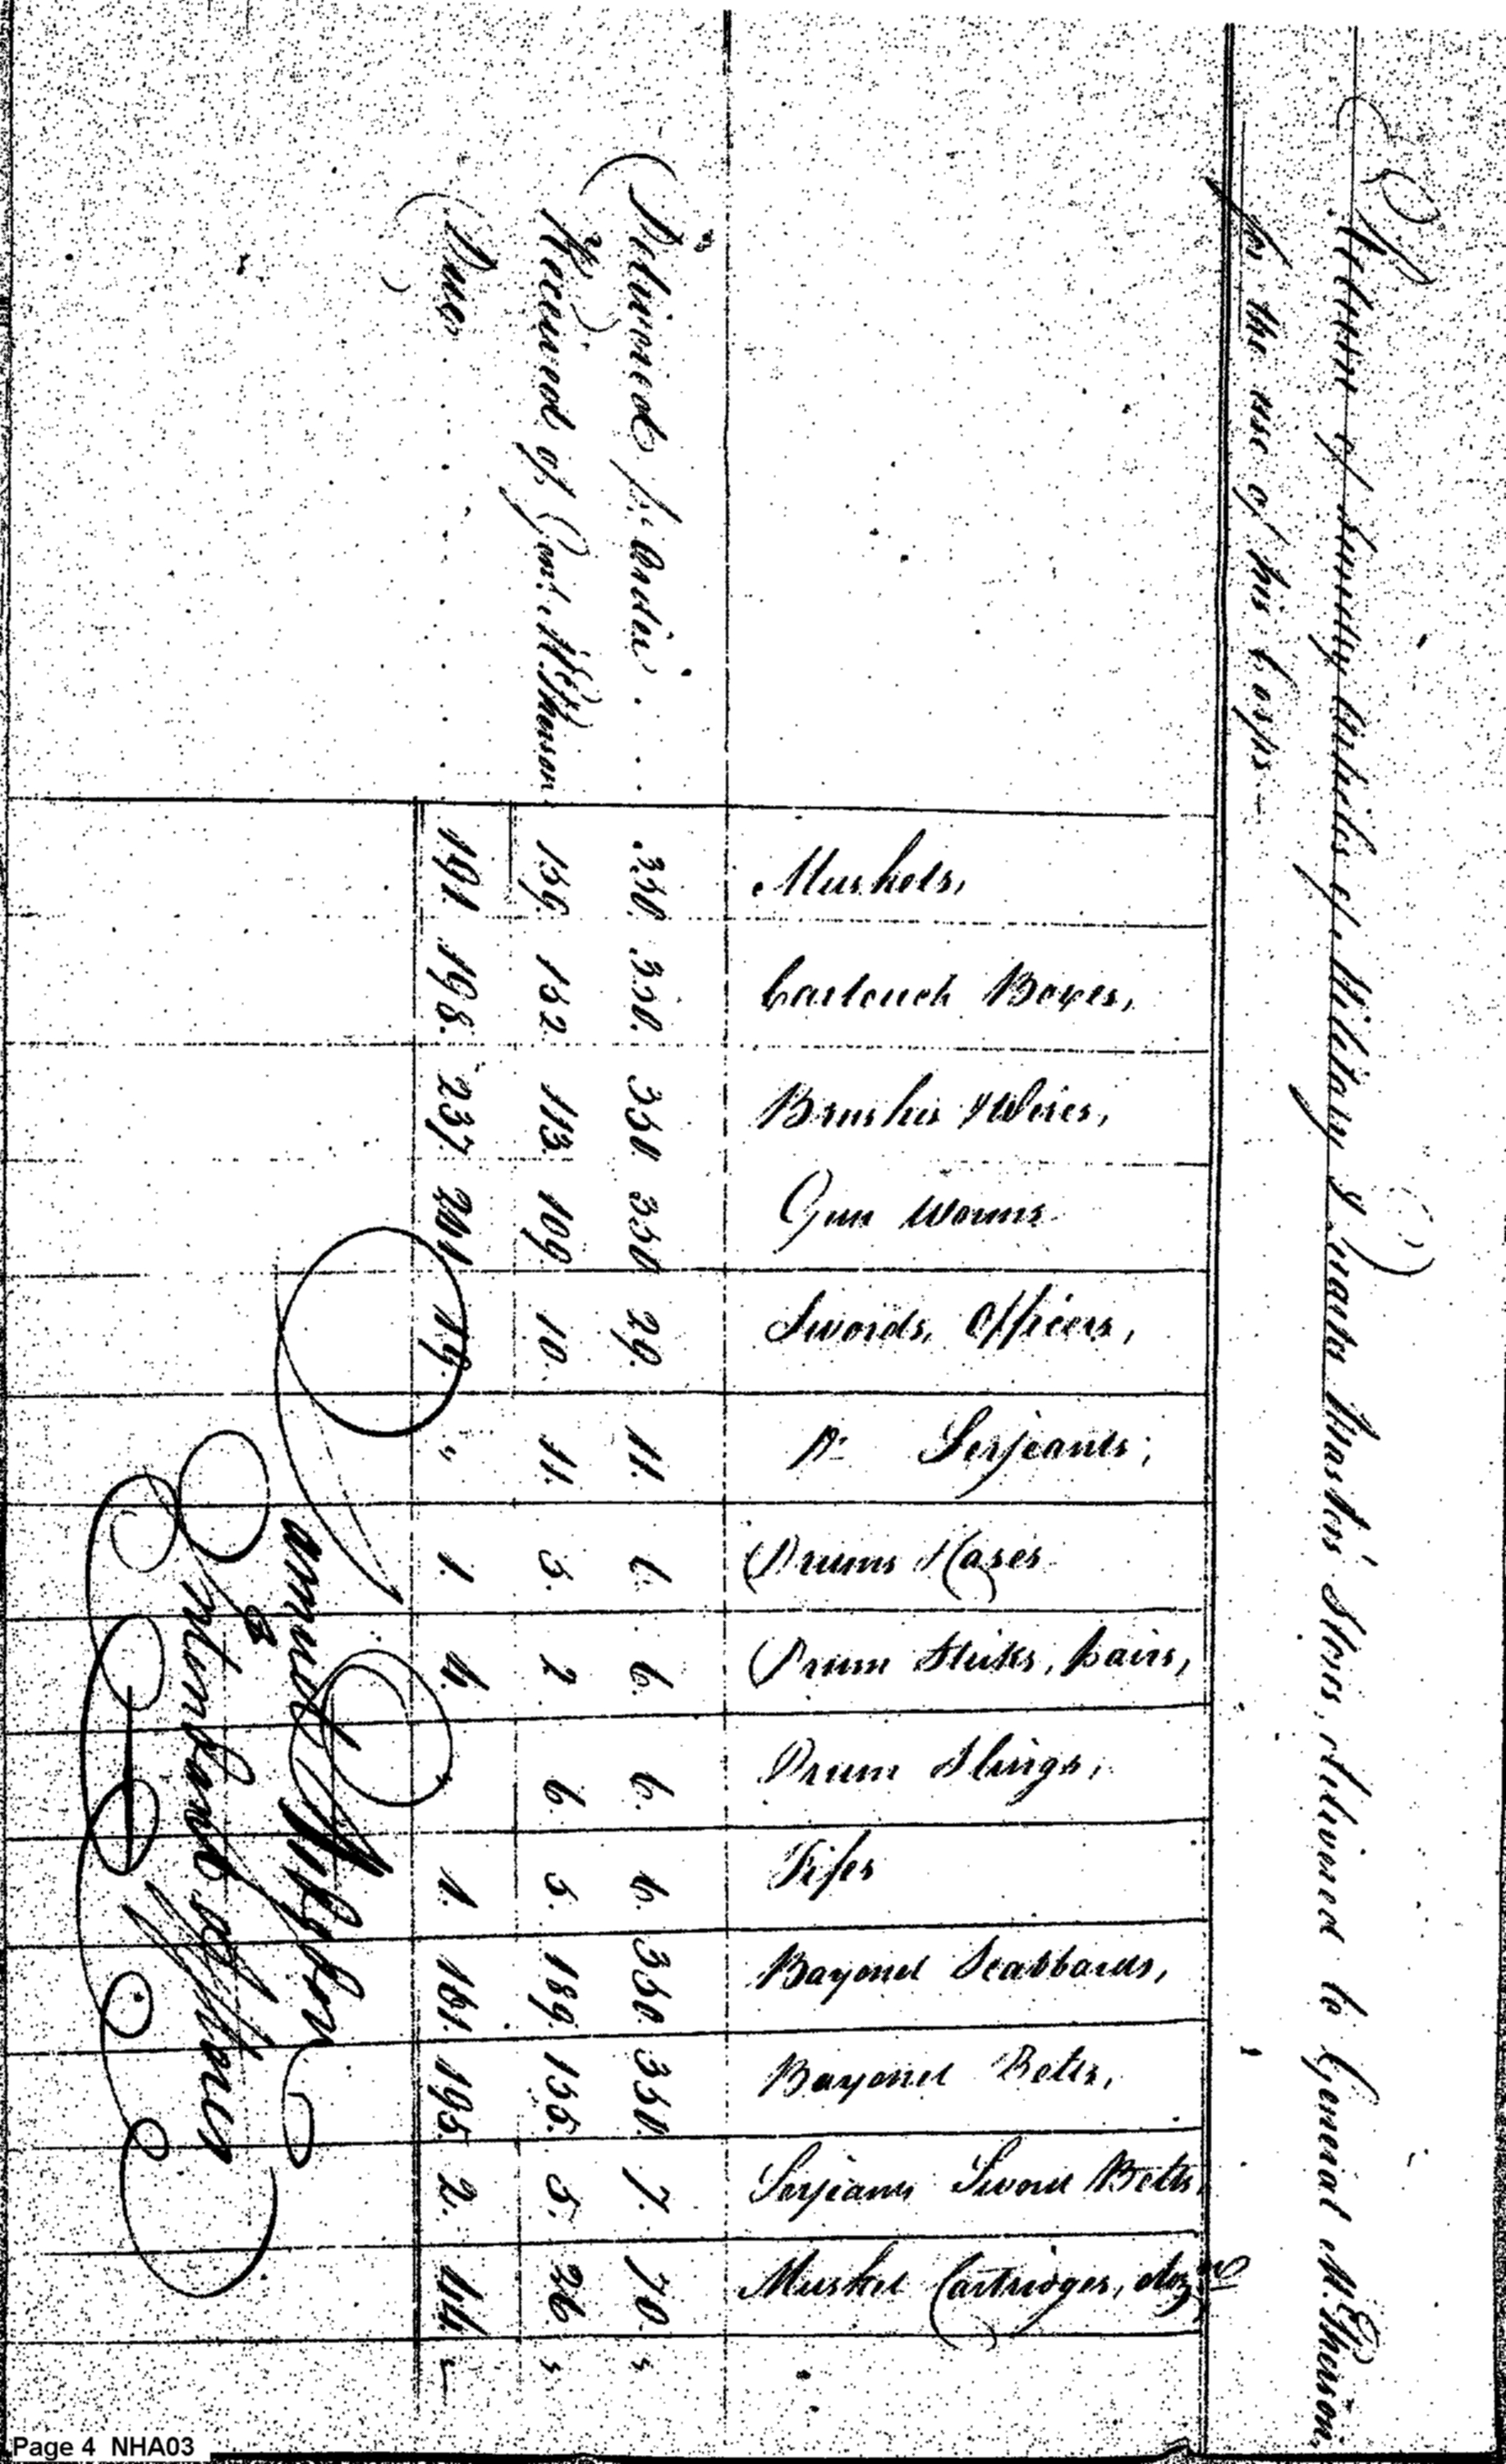 Return of Sundry Articles of Military & Quarter Master's Stores, delivered to General McPherson,
for the use of his Corps —
Muskets,
Cartouch Boxes,
Brushes & Wires,
Gun Worms
Swords, Officers,
Do Serjeants,
Drums & Cases
Drum Sticks, pairs,
Drum Slings,
Fifes
Bayonet Scabbards,
Bayonet Belts,
Serjeants Sword Belts,
Musket Cartridges, dozns
Delivered pr. order . . . . 350. 350. 350 350 29. 11. 6. 6. 6. 6. 350. 350. 7. 70.
Received of Genl. McPherson 159. 152. 113. 109. 10. 11. 5. 2. 6. 5. 189. 155. 5. 26.
Due . . . . . . 191. 198. 237. 241 19. " 1. 4. " 1. 161. 195. 2. 44.
Samuel Hodgdon
Intendant of Stores
Page 4 NHA03